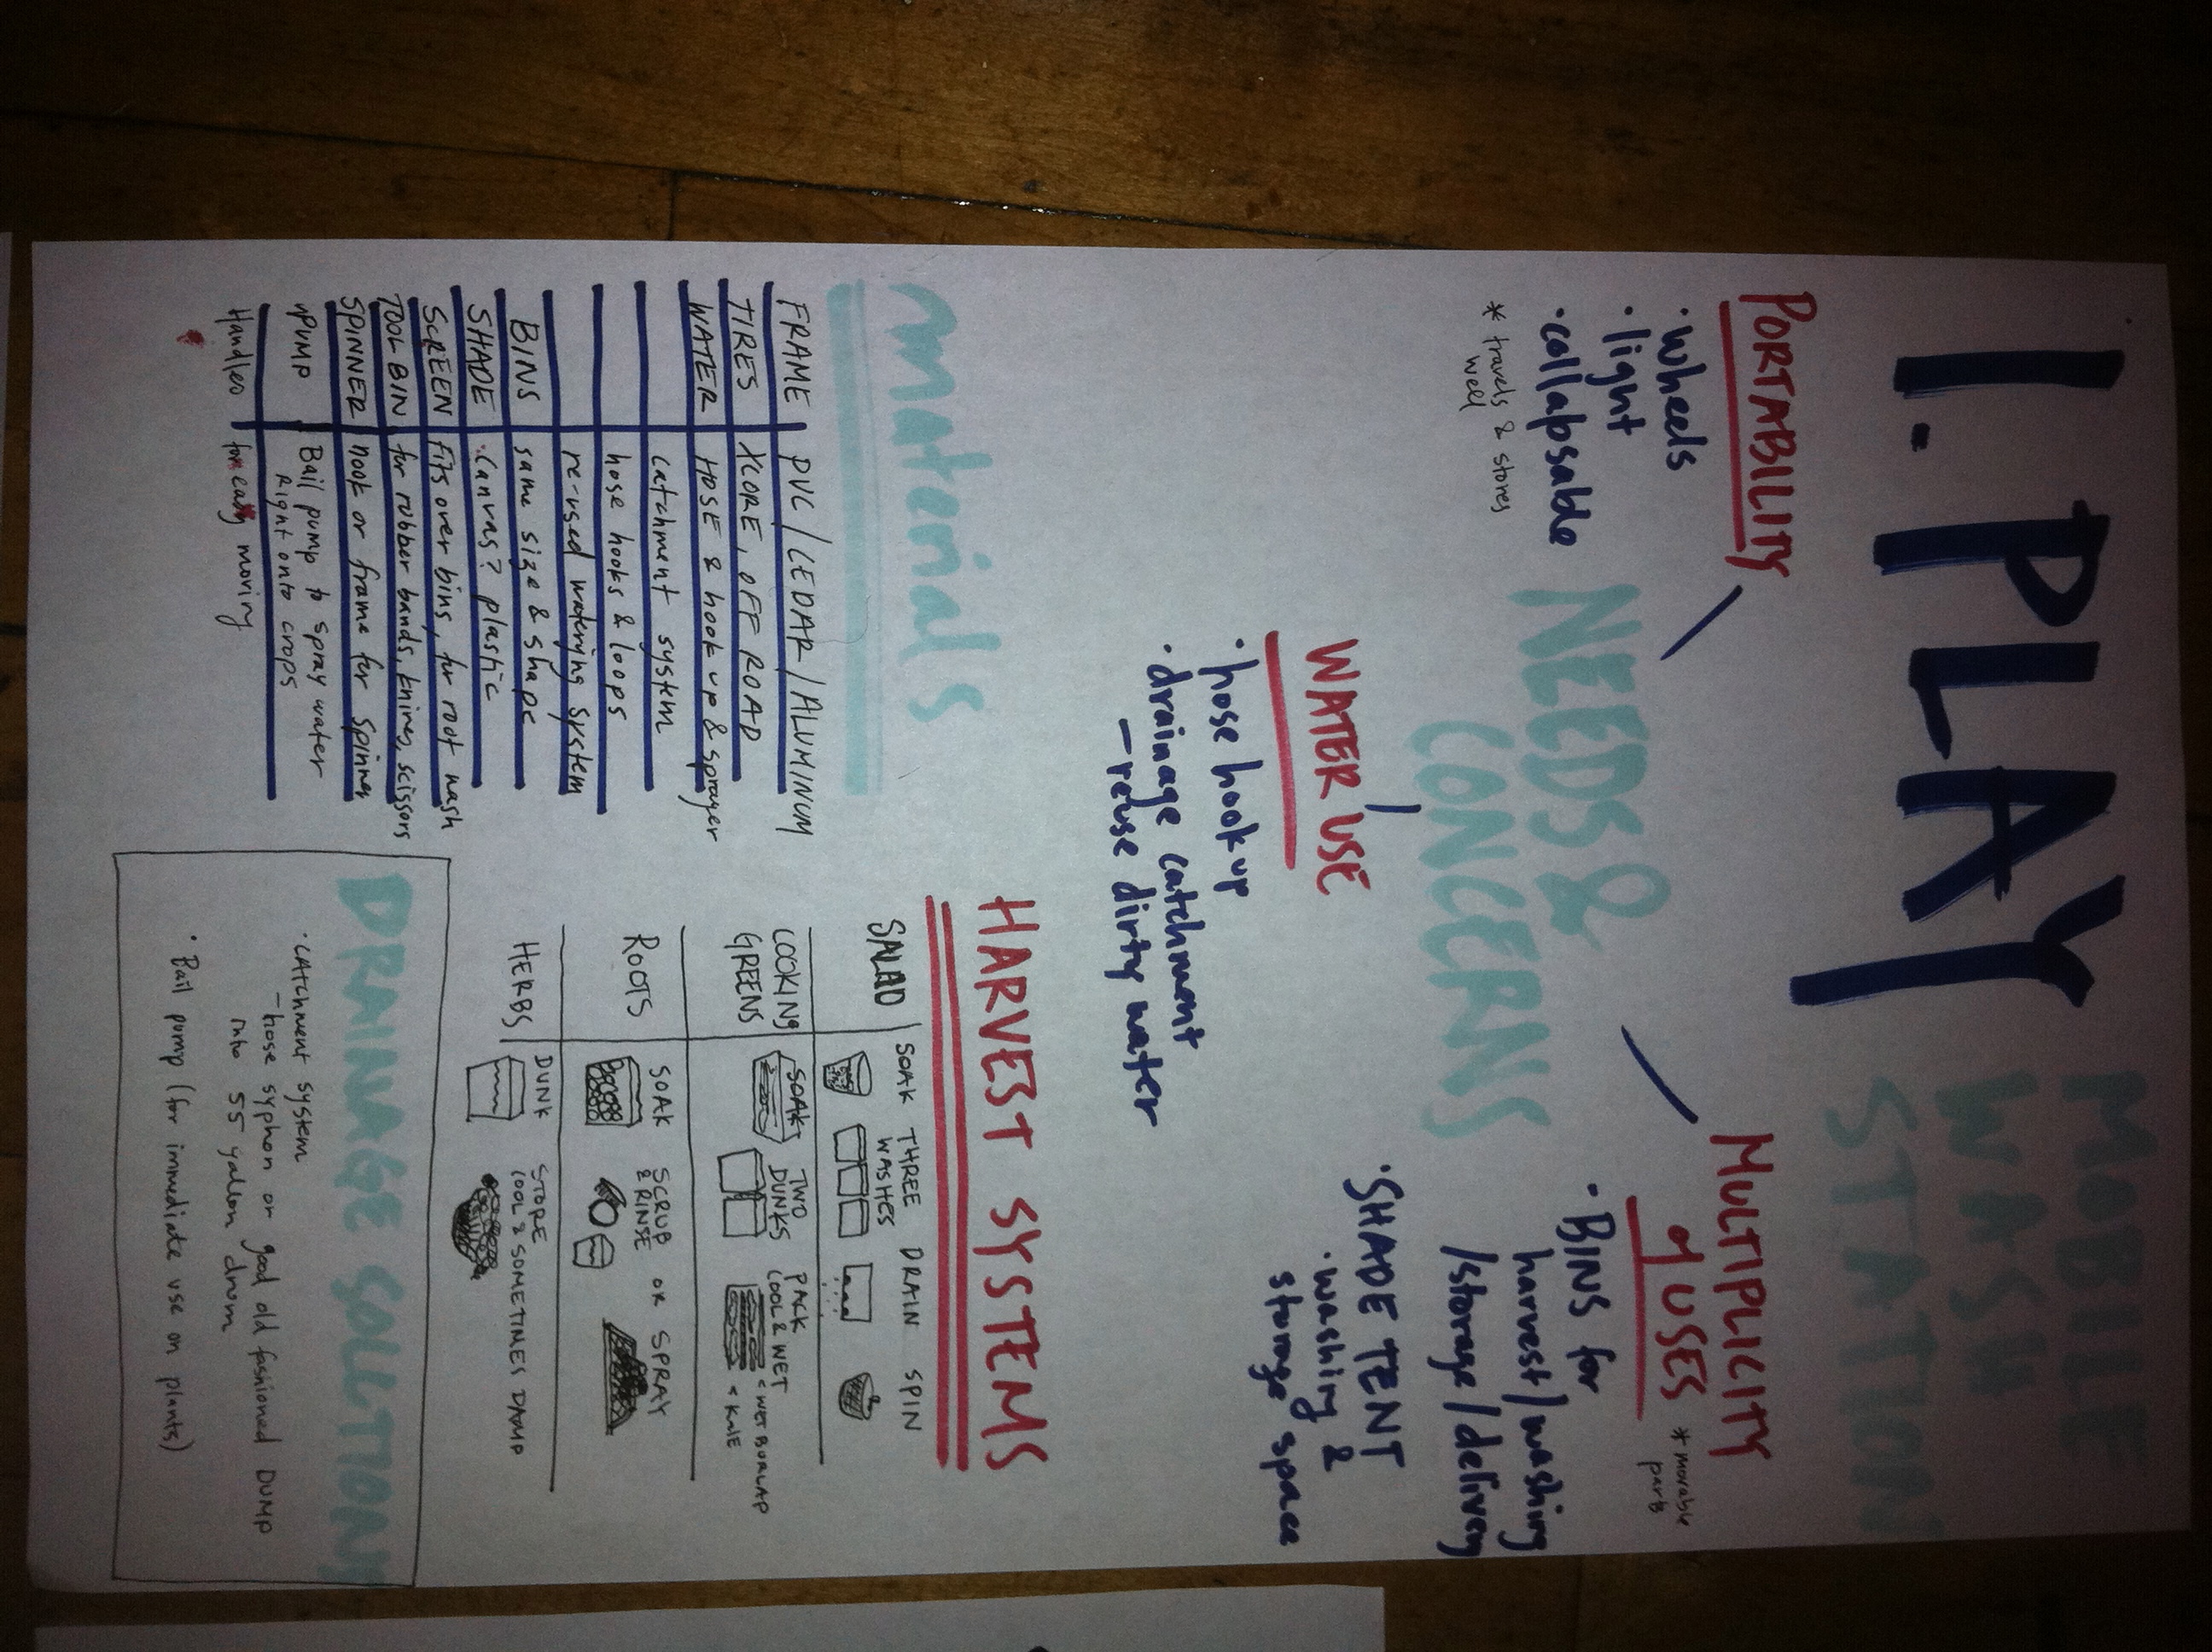 1. PLAY
MOBILE
WASH
STATION
PORTABILITY
• wheels
• light
• collapsable
* travels & stores
well
NEEDS &
CONCERNS
MULTIPLICITY
of USES
* movable
parts
• BINS for
harvest/washing
/storage/delivery
• SHADE TENT
• washing &
storage space
WATER USE
• hose hook up
• drainage catchment
– reuse dirty water
materials
FRAME PVC/CEDAR/ALUMINUM
TIRES XCORE, OFF ROAD
WATER HOSE & hook up & sprayer
catchment system
hose hooks & loops
re-used watering system
BINS same size & shape
SHADE canvas? plastic
SCREEN fits over bins, for root wash
TOOL BIN for rubber bands, knives, scissors
SPINNER hook or frame for spinner
PUMP Bail pump to spray water
Right onto crops
Handles for easy moving
HARVEST SYSTEMS
SALAD SOAK THREE WASHES DRAIN SPIN
COOKING GREENS SOAK TWO DUNKS PACK COOL & WET
< WET BURLAP
< KALE
ROOTS SOAK SCRUB & RINSE OR SPRAY
HERBS DUNK STORE COOL & SOMETIMES DAMP
DRAINAGE SOLUTIONS
• CATCHMENT system
– hose syphon or good old fashioned DUMP
into 55 gallon drum
• Bail pump (for immediate use on plants)